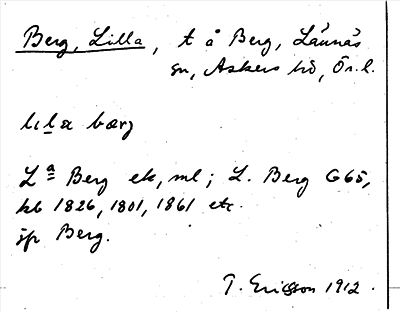 Berg, Lilla, t å Berg, Lännäs
sn, Askers hd, Ör. l.
lıla bærj
L<sup>a</sup> Berg ek, ml; L. Berg G65,
kb 1826, 1801, 1861 etc.
jfr Berg.
T. Ericsson 1912.